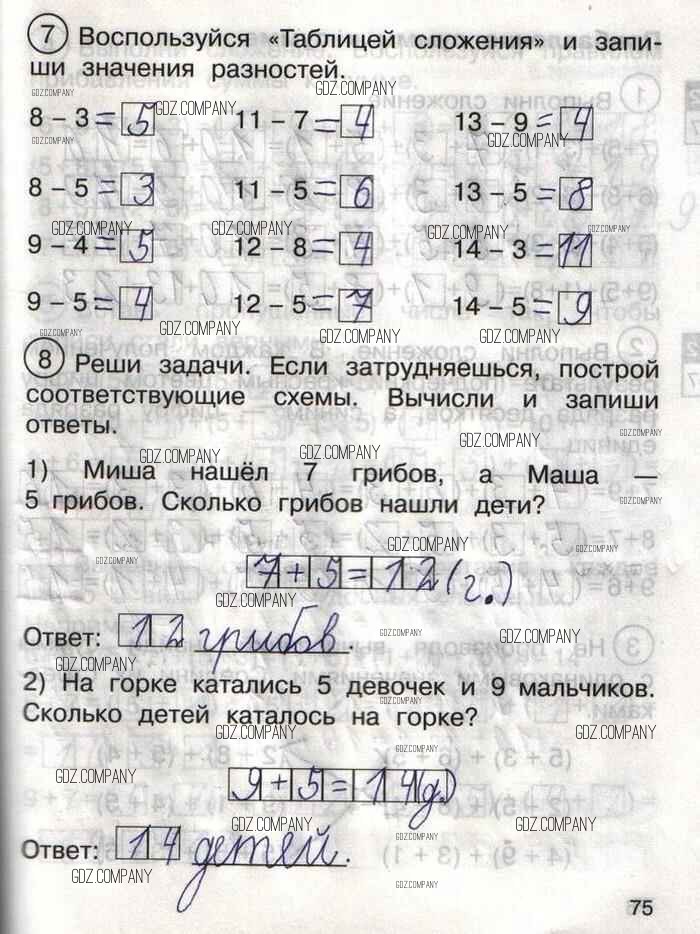 7 Воспользуйся «Таблицей сложения» и запи-
ши значения разностей.
8 – 3 = 5 11 – 7 = 4 13 – 9 = 4
8 – 5 = 3 11 – 5 = 6 13 – 5 = 8
9 – 4 = 5 12 – 8 = 4 14 – 3 = 11
9 – 5 = 4 12 – 5 = 7 14 – 5 = 9
8 Реши задачи. Если затрудняешься, построй
соответствующие схемы. Вычисли и запиши
ответы.
1) Миша нашёл 7 грибов, а Маша —
5 грибов. Сколько грибов нашли дети?
7 + 5 = 12 (г.)
Ответ: 12 грибов.
2) На горке катались 5 девочек и 9 мальчиков.
Сколько детей каталось на горке?
9 + 5 = 14 (д.)
Ответ: 14 детей.
75
GDZ.COMPANY